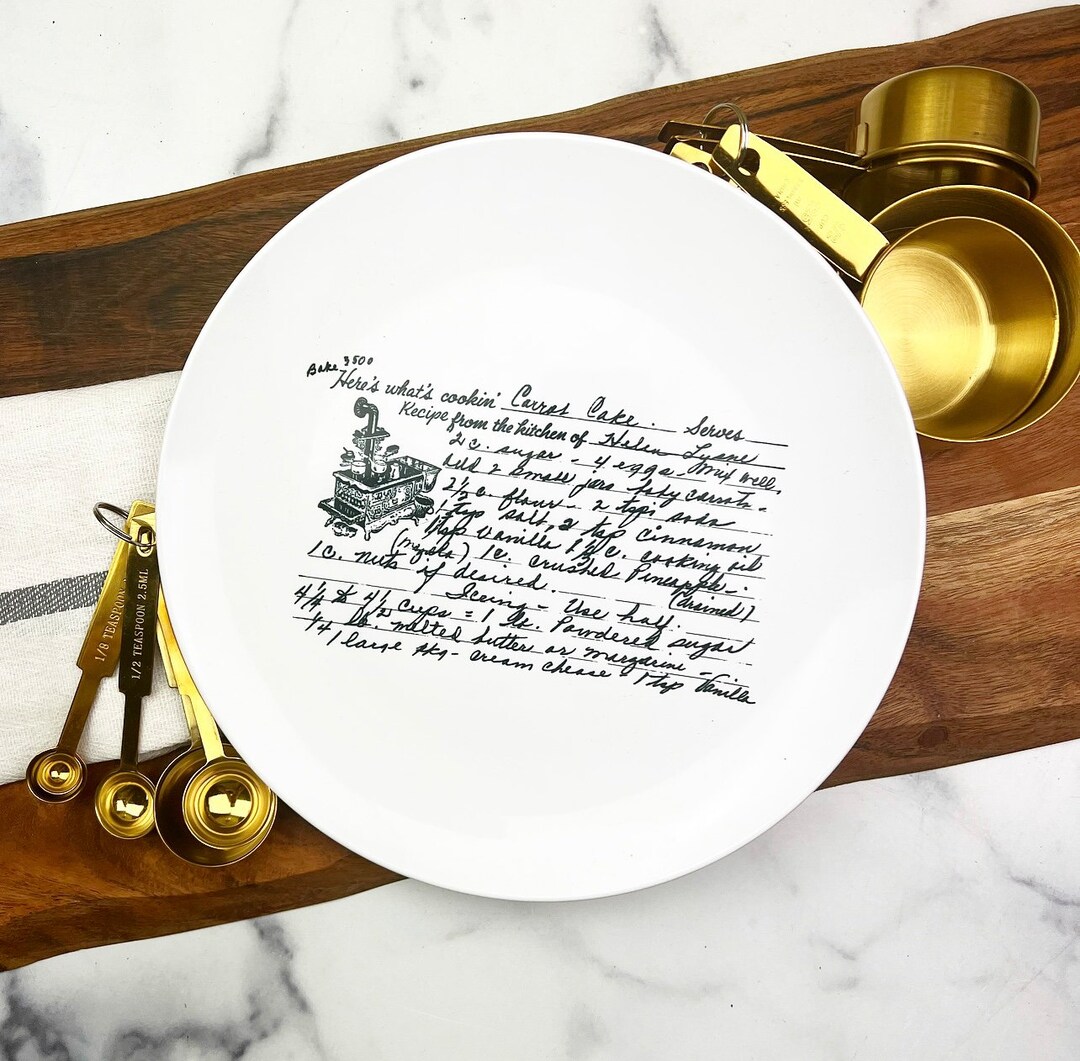 Bake 350°
Here's what's cookin' Carrot Cake. Serves
Recipe from the kitchen of Helen Lyane
2 c. sugar - 4 eggs Mix well,
Add 2 small jars baby carrots -
2 1/2 c. flour - 2 tsps soda
1 tsp salt, 2 tsp cinnamon
1 tsp Vanilla 1 1/2 c. cooking oil
(Mazola) 1 c. crushed Pineapple -
1 c. nuts if desired. (drained)
Iceing - Use half.
4 1/4 to 4 1/2 cups = 1 lb. Powdered sugar
1/4 lb. melted butter or margarine -
1 large pkg - cream cheese - 1 tsp Vanilla
1/8 TEASPOON
1/2 TEASPOON 2.5ML